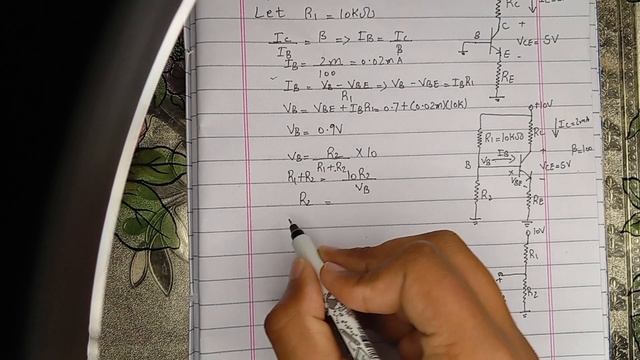 Let R1 = 10kΩ
Ic/IB = β => IB = Ic/β
IB = 2m/100 = 0.02mA
IB = VB - VBE/R1 => VB - VBE = IBR1
VB = VBE + IBR1 = 0.7 + (0.02m)(10k)
VB = 0.9V
VB = R2/R1+R2 × 10
R1+R2 = 10R2/VB
R2 =
Rc
Ic
C
+
B
VCE = 5V
E
-
RE
+10V
Rc
Ic = 2mA
R1 = 10kΩ
β = 100
IB
B
VB
VCE = 5V
VBE
R2
RE
10V
R1
+
R2